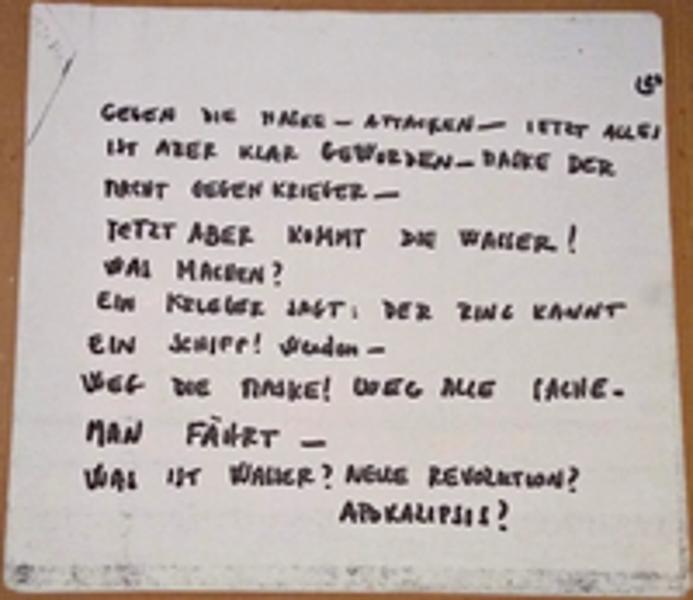 GEGEN DIE MASKE - ATTACKEN - JETZT ALLES
IST ABER KLAR GEWORDEN - MASKE DER
MACHT GEGEN KRIEGER -
JETZT ABER KOMMT DIE WASSER!
WAS MACHEN?
EIN KRIEGER SAGT: DER RING KANNT
EIN SCHIFF! werden -
WEG DIE MASKE! WEG ALLE SACHE -
MAN FÄHRT -
WAS IST WASSER? NEUE REVOLUTION?
APOKALIPSIS?